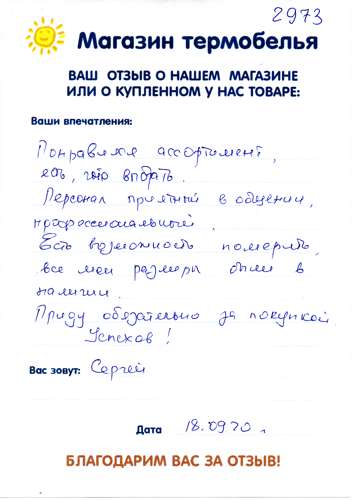 2973
Магазин термобелья
ВАШ ОТЗЫВ О НАШЕМ МАГАЗИНЕ
ИЛИ О КУПЛЕННОМ У НАС ТОВАРЕ:
Ваши впечатления:
Понравился ассортимент,
есть, что выбрать.
Персонал приятный в общении,
профессиональный.
Есть возможность померить,
все мои размеры были в
наличии.
Приду обязательно за покупкой
Успехов!
Вас зовут: Сергей
Дата 18.09.20 г.
БЛАГОДАРИМ ВАС ЗА ОТЗЫВ!